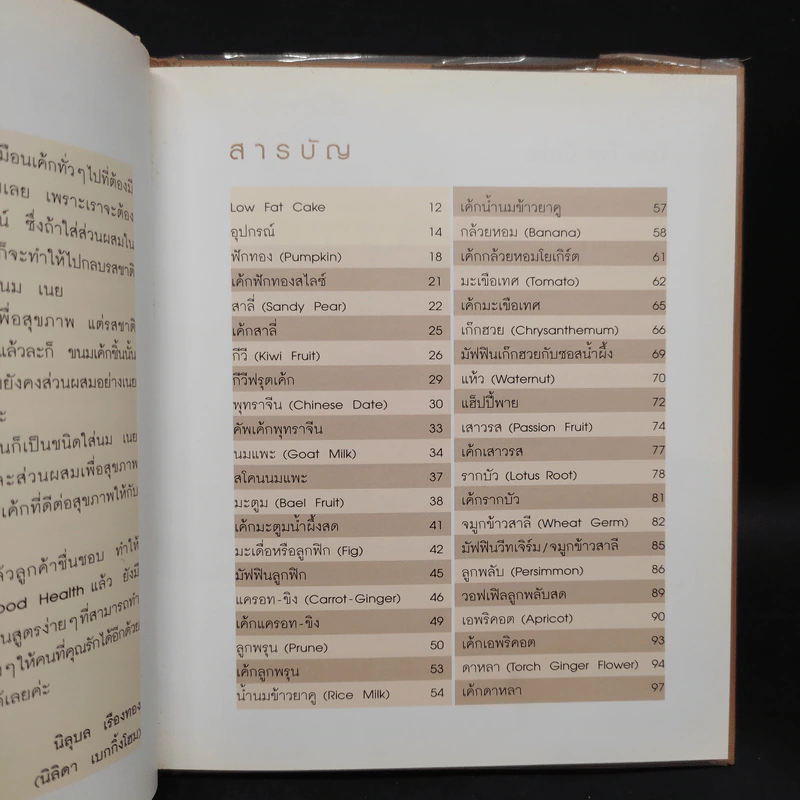 มือนเค้กทั่วๆไปที่ต้องมี
เลย เพราะเราจะต้อง
ซึ่งถ้าใส่ส่วนผสมใน
ก็จะทำให้ไปกลบรสชาติ
นม เนย
พื่อสุขภาพ แต่รสชาติ
แล้วละก็ ขนมเค้กชิ้นนั้น
ยังคงส่วนผสมอย่างเนย
ะ
นก็เป็นชนิดใส่นม เนย
ละส่วนผสมเพื่อสุขภาพ
เค้กที่ดีต่อสุขภาพให้กับ
ลูกค้าชื่นชอบ ทำให้
ood Health แล้ว ยังมี
นสูตรง่ายๆที่สามารถทำ
ๆให้คนที่คุณรักได้อีกด้วย
ด้เลยค่ะ
นิลุบล เรืองทอง
(นิลิตา เบกกิ้งโฮม)
สารบัญ
Low Fat Cake 12
อุปกรณ์ 14
ฟักทอง (Pumpkin) 18
เค้กฟักทองสไลซ์ 21
สาลี่ (Sandy Pear) 22
เค้กสาลี่ 25
กีวี (Kiwi Fruit) 26
กีวีฟรุตเค้ก 29
พุทราจีน (Chinese Date) 30
คัพเค้กพุทราจีน 33
นมแพะ (Goat Milk) 34
สโคนนมแพะ 37
มะตูม (Bael Fruit) 38
เค้กมะตูมน้ำผึ้งสด 41
มะเดื่อหรือลูกฟิก (Fig) 42
มัฟฟินลูกฟิก 45
แครอท-ขิง (Carrot-Ginger) 46
เค้กแครอท-ขิง 49
ลูกพรุน (Prune) 50
เค้กลูกพรุน 53
น้ำนมข้าวยาคู (Rice Milk) 54
เค้กน้ำนมข้าวยาคู 57
กล้วยหอม (Banana) 58
เค้กกล้วยหอมโยเกิร์ต 61
มะเขือเทศ (Tomato) 62
เค้กมะเขือเทศ 65
เก๊กฮวย (Chrysanthemum) 66
มัฟฟินเก๊กฮวยกับซอสน้ำผึ้ง 69
แห้ว (Waternut) 70
แฮ็ปปี้พาย 72
เสาวรส (Passion Fruit) 74
เค้กเสาวรส 77
รากบัว (Lotus Root) 78
เค้กรากบัว 81
จมูกข้าวสาลี (Wheat Germ) 82
มัฟฟินวีทเจิร์ม/จมูกข้าวสาลี 85
ลูกพลับ (Persimmon) 86
วอฟเฟิลลูกพลับสด 89
เอพริคอต (Apricot) 90
เค้กเอพริคอต 93
ดาหลา (Torch Ginger Flower) 94
เค้กดาหลา 97